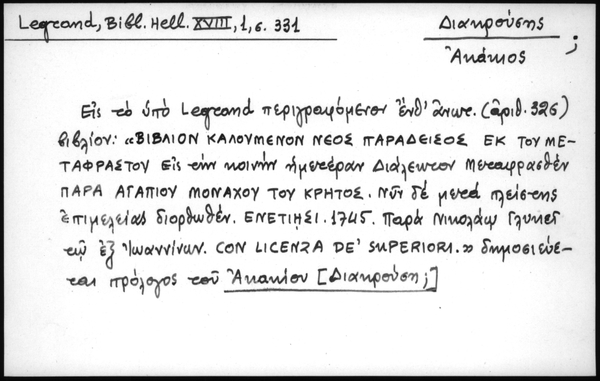 Legrand, Bibl. Hell. XVIII, 1, σ. 331
Διακρούσης
Ἀκάκιος ;
Εἰς τὸ ὑπὸ Legrand περιγραφόμενον ἔνθ' ἄνωτ. (ἀριθ. 326)
βιβλίον: «ΒΙΒΛΙΟΝ ΚΑΛΟΥΜΕΝΟΝ ΝΕΟΣ ΠΑΡΑΔΕΙΣΟΣ ΕΚ ΤΟΥ ΜΕ-
ΤΑΦΡΑΣΤΟΥ Εἰς τὴν κοινὴν ἡμετέραν Διάλεκτον Μεταφρασθὲν
ΠΑΡΑ ΑΓΑΠΙΟΥ ΜΟΝΑΧΟΥ ΤΟΥ ΚΡΗΤΟΣ. Νῦν δὲ μετὰ πλείστης
ἐπιμελείας διορθωθέν. ΕΝΕΤΙΗΣΙ. 1745. Παρὰ Νικολάῳ Γλυκεῖ
τῷ ἐξ Ἰωαννίνων. CON LICENZA DE' SUPERIORI.» δημοσιεύε-
ται πρόλογος τοῦ Ἀκακίου [Διακρούση;]